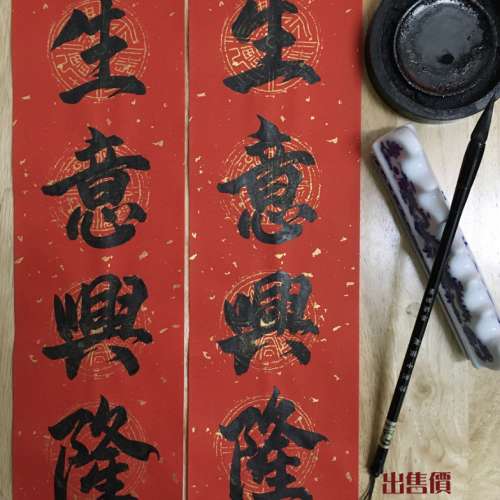 生意興隆
生意興隆
出售價